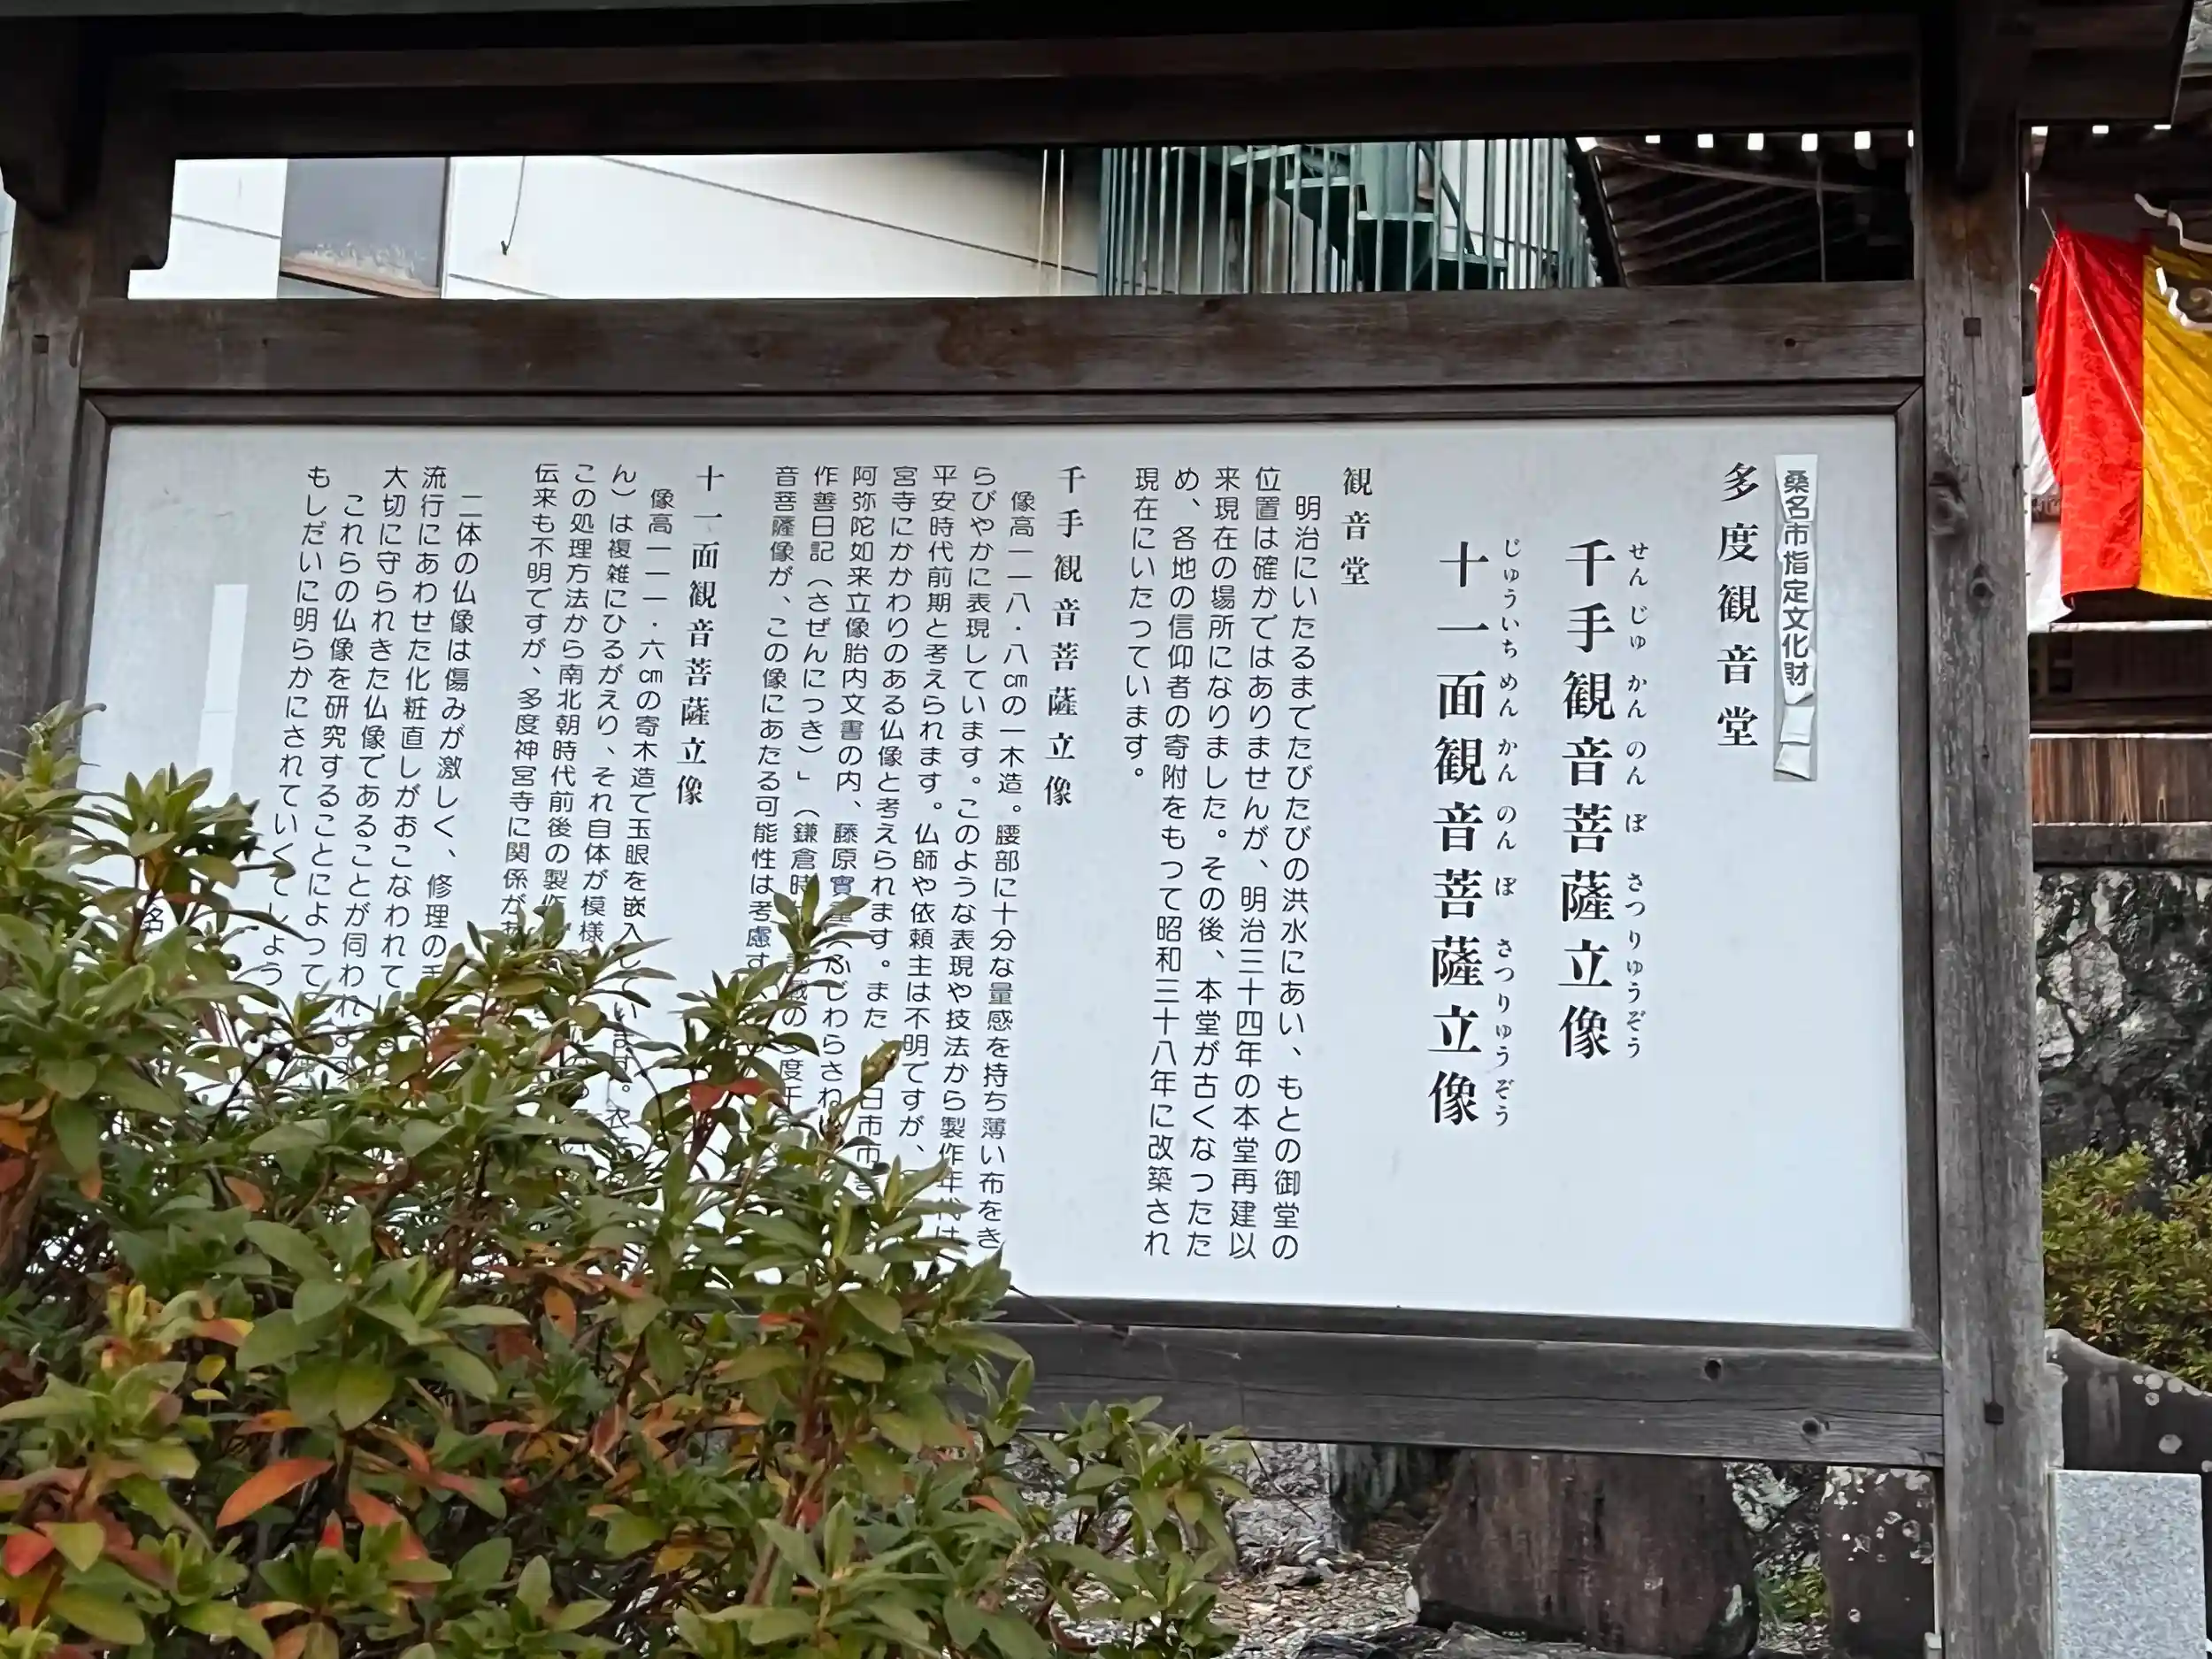 桑名市指定文化財
多度観音堂
せんじゅかんのんぼさつりゅうぞう
千手観音菩薩立像
じゅういちめんかんのんぼさつりゅうぞう
十一面観音菩薩立像
観音堂
明治にいたるまでたびたびの洪水にあい、もとの御堂の
位置は確かではありませんが、明治三十四年の本堂再建以
来現在の場所になりました。その後、本堂が古くなったた
め、各地の信仰者の寄附をもって昭和三十八年に改築され
現在にいたっています。
千手観音菩薩立像
像高一一八・八㎝の一木造。腰部に十分な量感を持ち薄い布をき
らびやかに表現しています。このような表現や技法から製作年代は
平安時代前期と考えられます。仏師や依頼主は不明ですが、
宮寺にかかわりのある仏像と考えられます。また 日市市
阿弥陀如来立像胎内文書の内、藤原實重(ふじわらさね
作善日記(さぜんにっき)」(鎌倉時 記載の 度千
音菩薩像が、この像にあたる可能性は考慮す
十一面観音菩薩立像
像高一一一・六㎝の寄木造で玉眼を嵌入しています。衣
ん)は複雑にひるがえり、それ自体が模様
この処理方法から南北朝時代前後の製作
伝来も不明ですが、多度神宮寺に関係が
二体の仏像は傷みが激しく、修理の
流行にあわせた化粧直しがおこなわれて
大切に守られきた仏像であることが伺われます
これらの仏像を研究することによって
もしだいに明らかにされていくでしょう
名